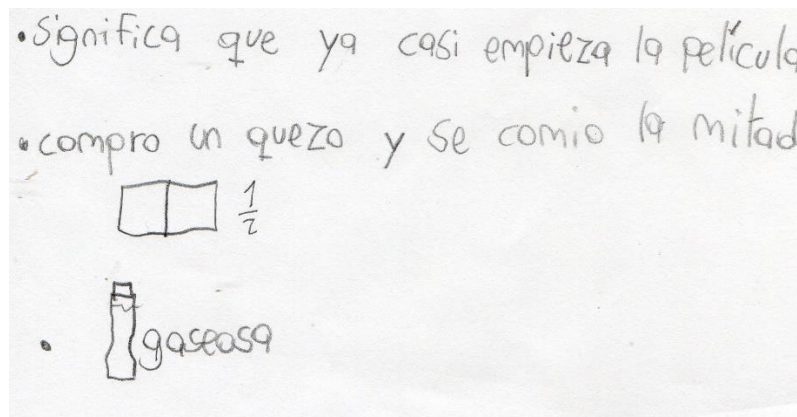 •Significa que ya casi empieza la película
•compro un quezo y se comio la mitad
1/2
• gaseosa